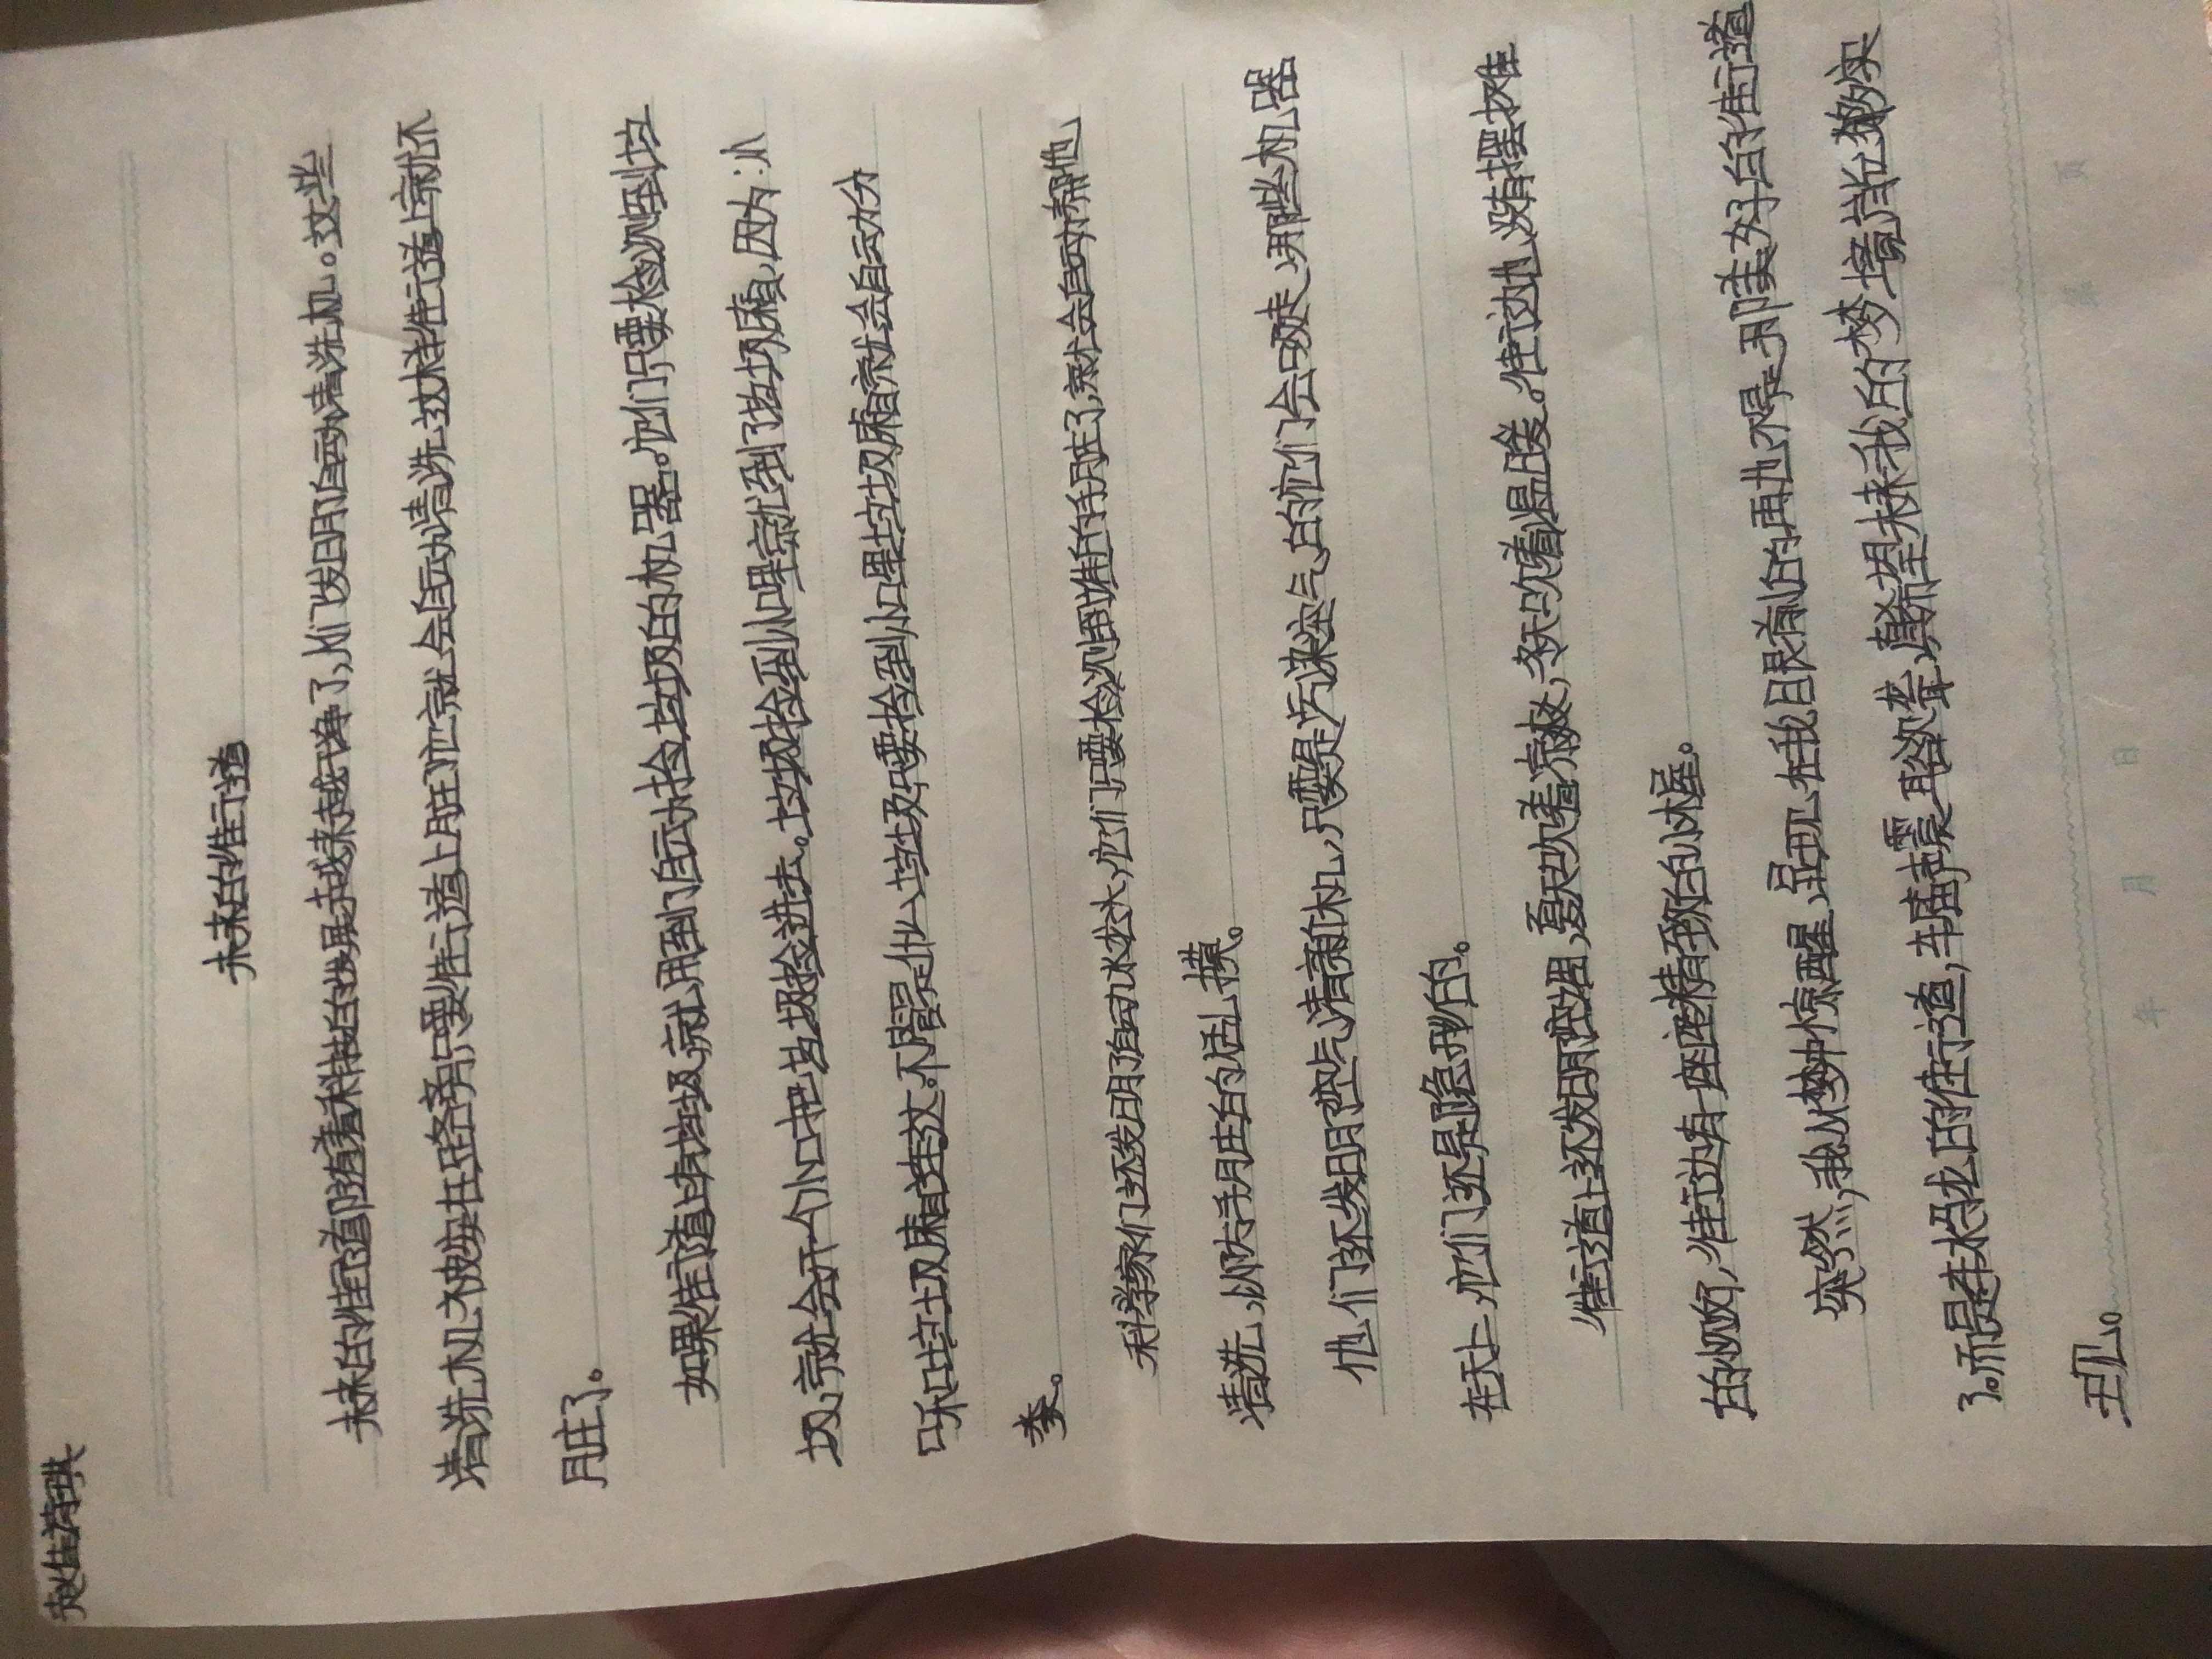 赵佳琦
未来的街道
未来的街道随着科技的发展越来越干净了，人们发明自动清洗机。这些
清洗机被安在路旁只要街道上脏了它就会自动清洗这样街道上就不
脏了。
如果街道上有垃圾，就用到了自动捡垃圾的机器。它们只要检测到垃
圾，就会开个小口把垃圾捡进去。垃圾捡到小口里就到了垃圾厢，因为：小
口和垃圾厢连这。不管是什么垃圾只要捡到小口里垃圾厢就会自动分
类。
科学家们还发明了自动水龙头，它们只要检测到谁的手脏了，就会自动帮他
清洗，以防手脏的话乱摸。
他们还发明空气清新机，只要是污染空气的它们会吸走，那些机器
在天上，它们还是隐形的。
街道上还发明空调，夏天吹着凉爽，冬天吹着温暖。街边也没有摆摊
的小贩，街边有一座座精致的小木屋。
突然，我从梦钟惊醒，显现在我目艮前的再也不是那美好的街道
了。而是车水马龙的街道，车声震耳欲聋，真希望未来我的梦境能够实
现。
年 月 日 第 页